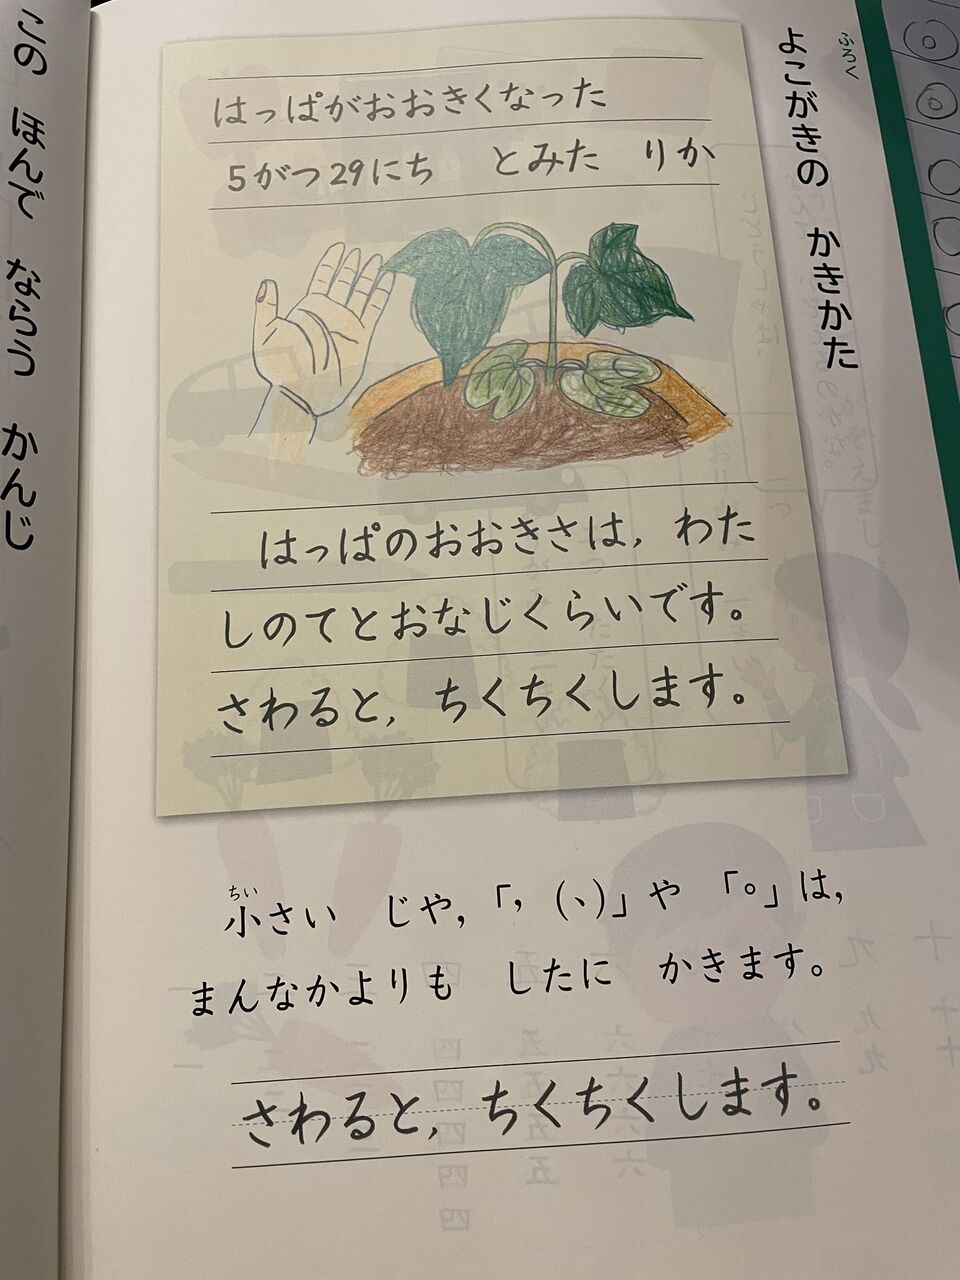 ふろく
よこがきの かきかた
はっぱがおおきくなった
5がつ29にち とみた りか
はっぱのおおきさは，わた
しのてとおなじくらいです。
さわると，ちくちくします。
ちい
小さい じや，「，（、）」や 「。」は，
まんなかよりも したに かきます。
さわると，ちくちくします。
この ほんで ならう かんじ